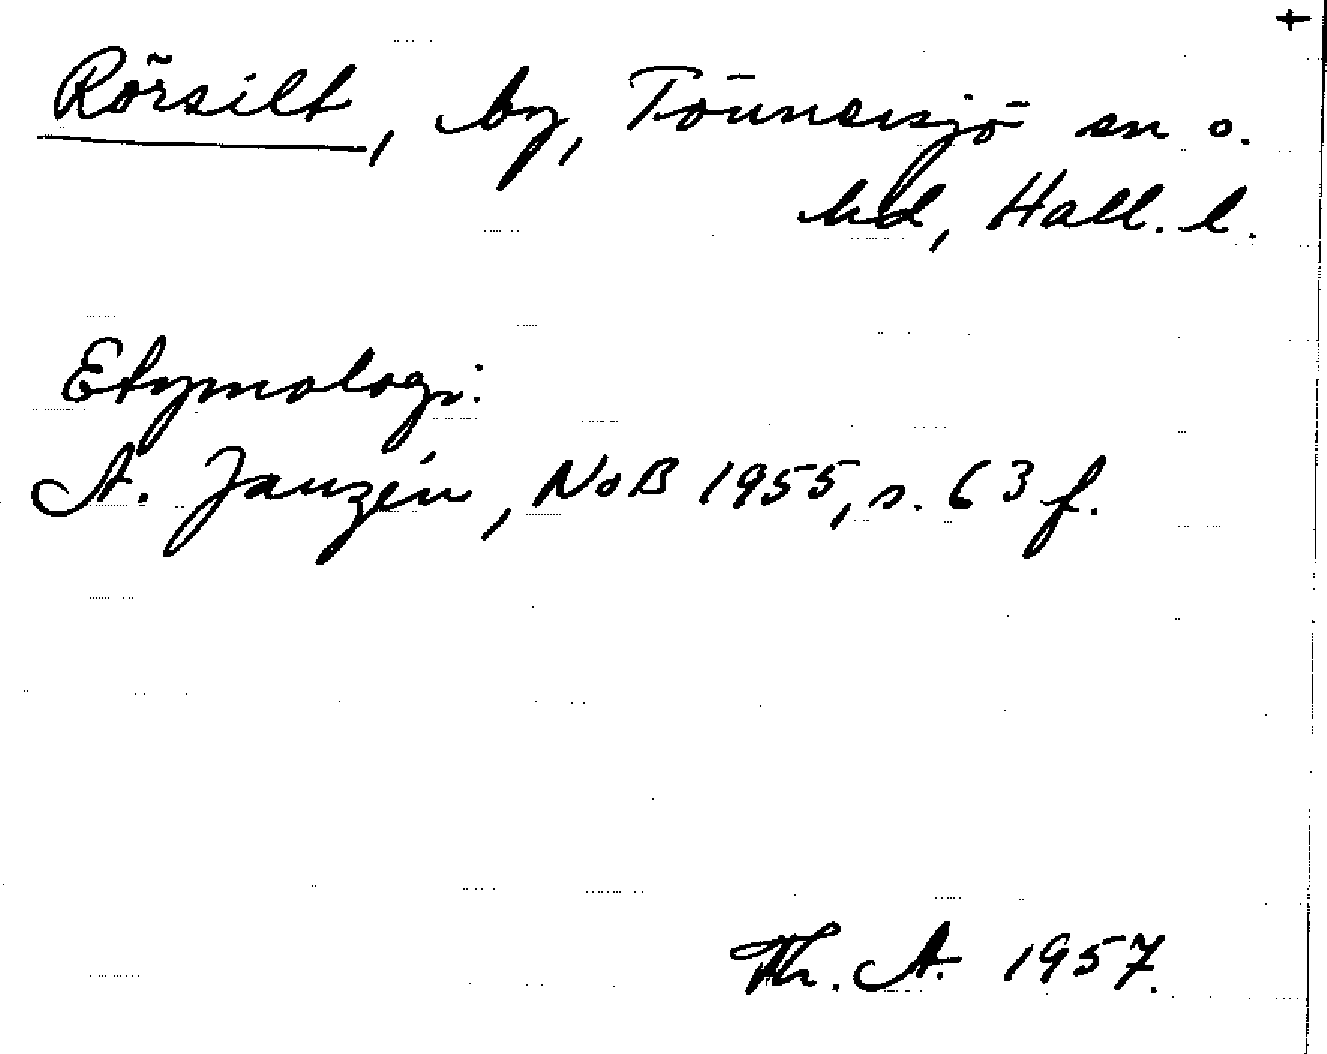 +
Rörsilt, by, Tönnersjö sn o.
hd, Hall. l.
Etymologi:
A. Janzén, NoB 1955, s. 63 f.
Th. A. 1957.